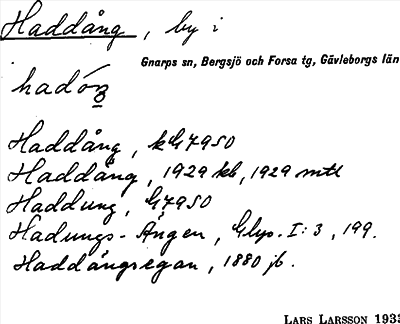 Haddång, by i
Gnarps sn, Bergsjö och Forsa tg, Gävleborgs län
hadóŋ
Haddång, kG7950
Haddång, 1929 kb, 1929 mtl
Haddung, G7950
Hadungs-Ängen, Glys. I:3, 199.
Haddångsegan, 1880 jb.
LARS LARSSON 1933